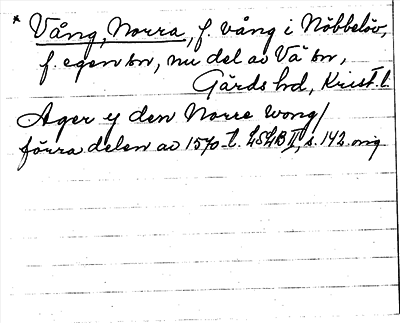 * Vång, Norra, f. vång i Nöbbelöv,
f. egen sn, nu del av Vä sn,
Gärds hd, Krist. l.
Ager y den Norre wong/
förra delen av 1570-t. LSLB II, s. 142. orig